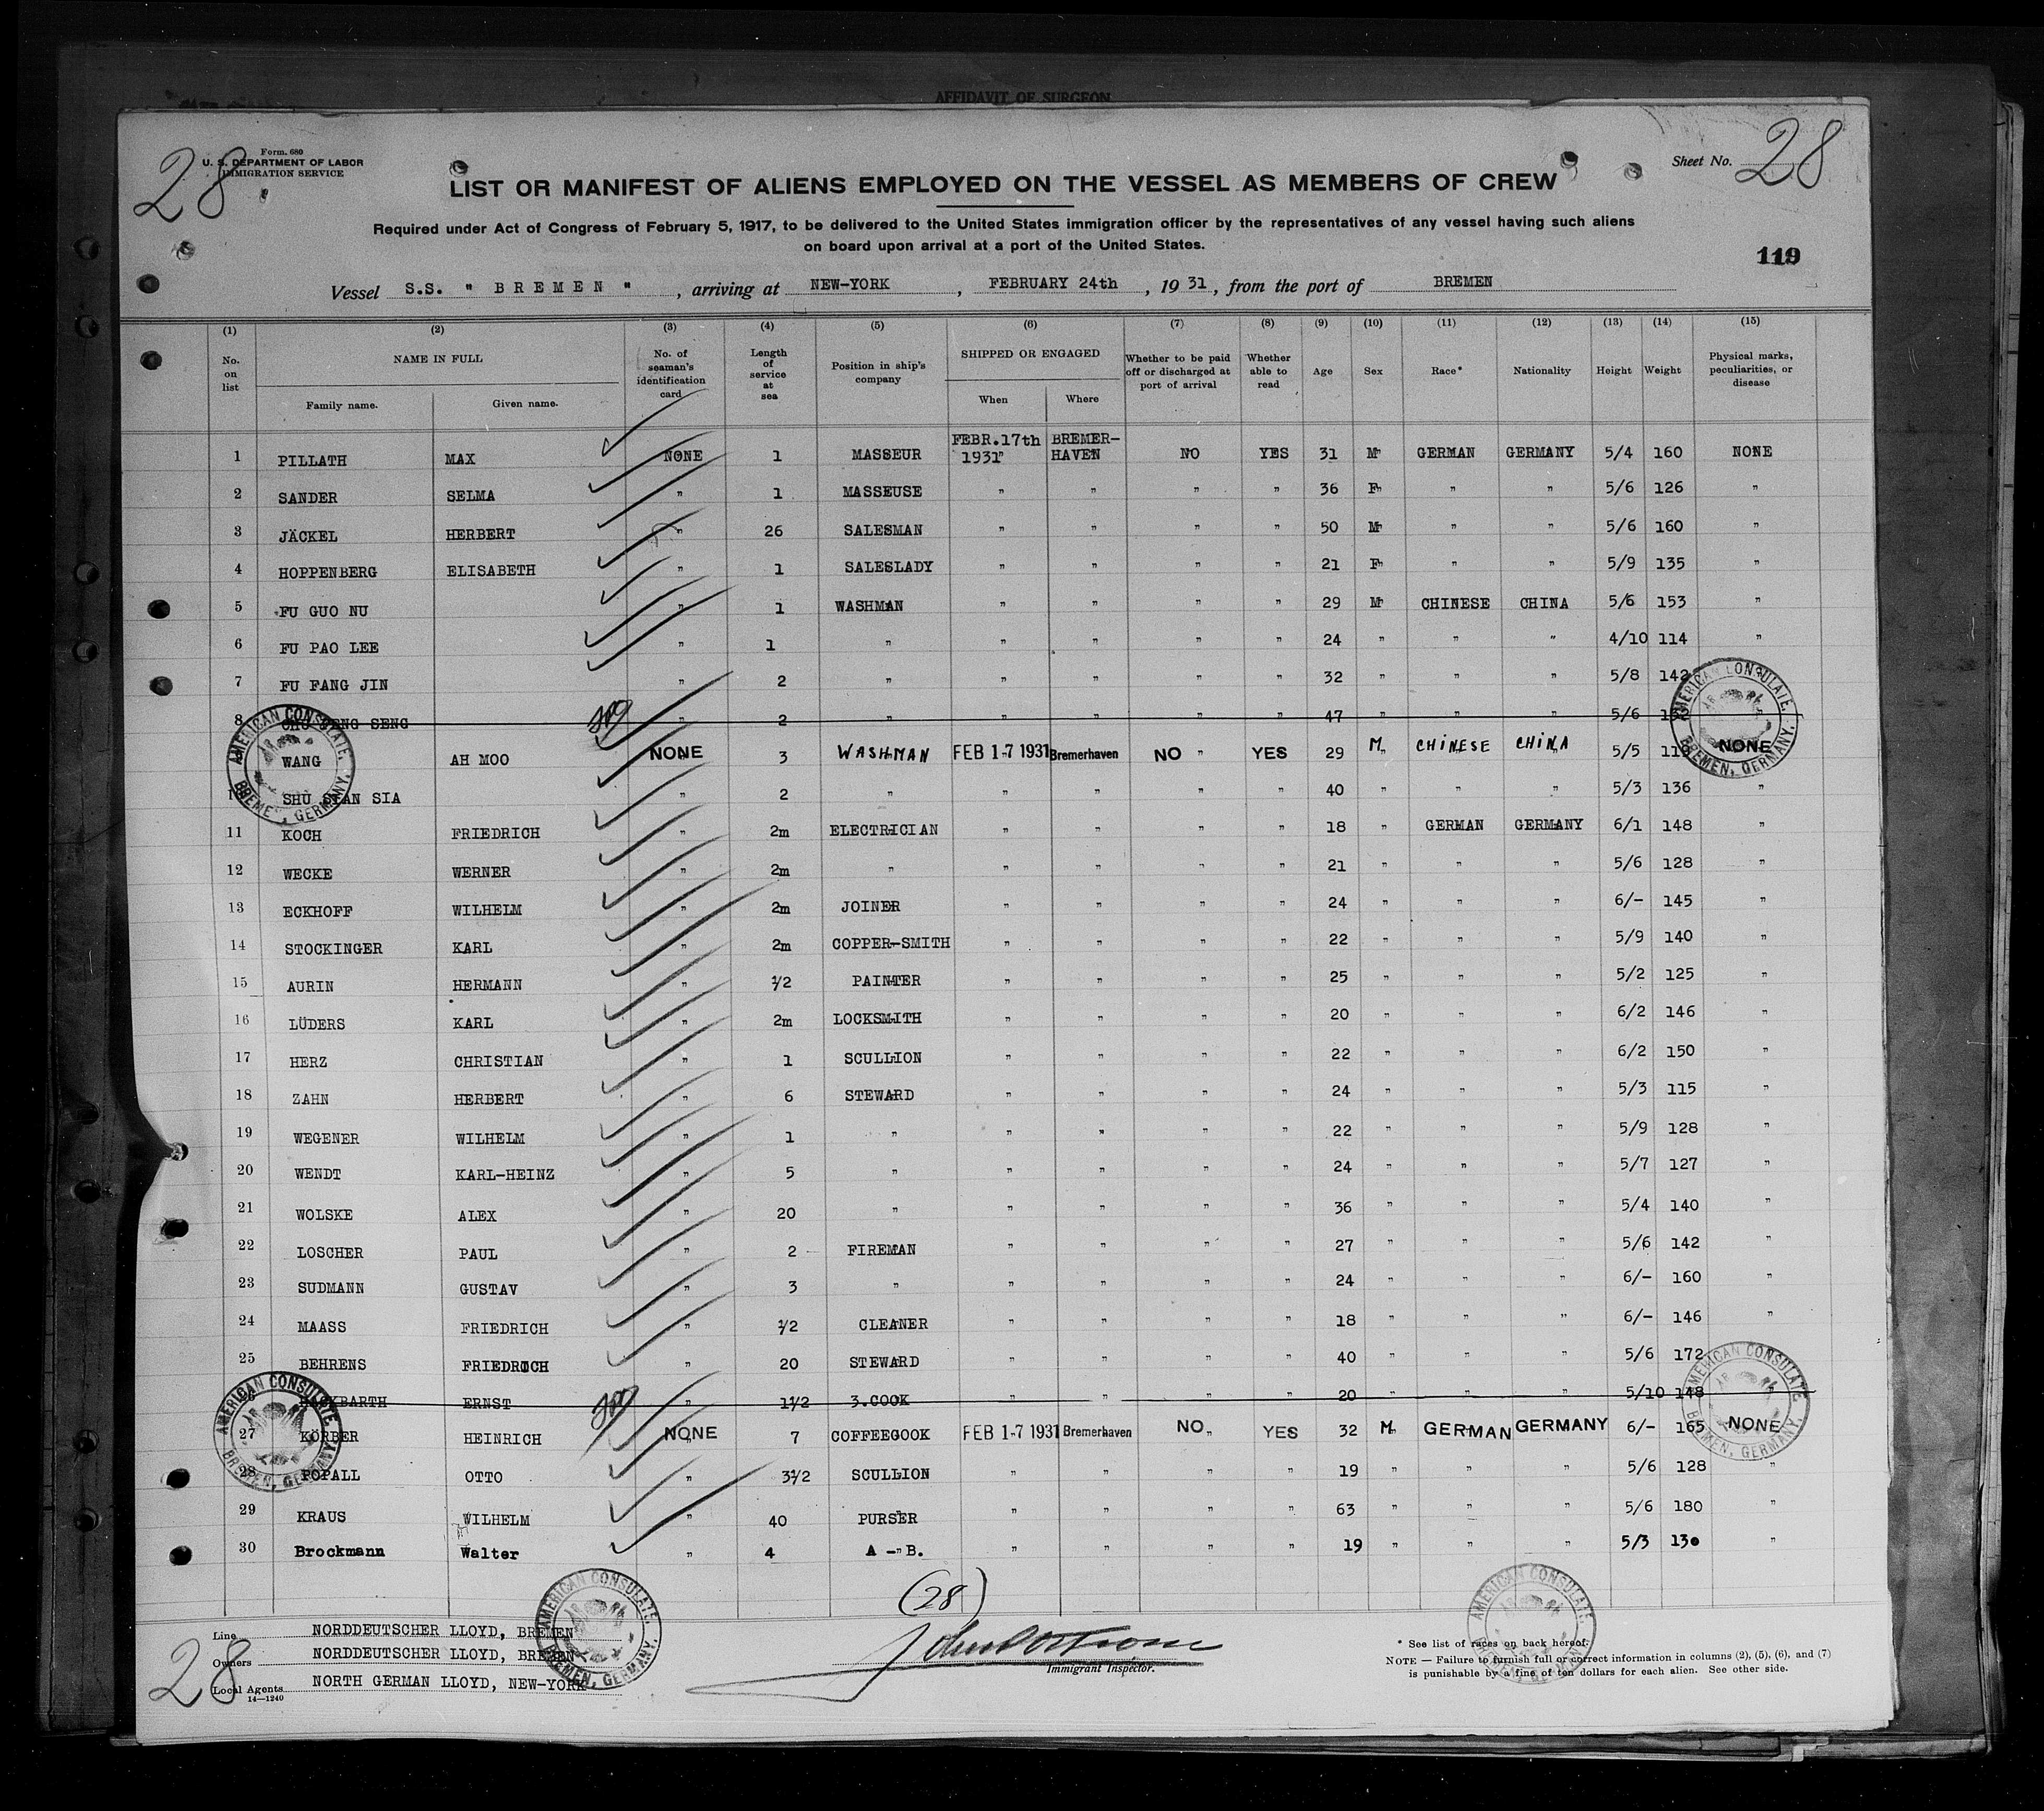 AFFIDAVIT OF SURGEON
28
Form. 680
U. S. DEPARTMENT OF LABOR
IMMIGRATION SERVICE
Sheet No. 28
LIST OR MANIFEST OF ALIENS EMPLOYED ON THE VESSEL AS MEMBERS OF CREW
Required under Act of Congress of February 5, 1917, to be delivered to the United States immigration officer by the representatives of any vessel having such aliens
on board upon arrival at a port of the United States.
119
Vessel S.S. " B R E M E N " , arriving at NEW-YORK , FEBRUARY 24th , 19 31 , from the port of BREMEN
(1) (2) (3) (4) (5) (6) (7) (8) (9) (10) (11) (12) (13) (14) (15)
No. on list NAME IN FULL Family name. Given name. No. of seaman's identification card Length of service at sea Position in ship's company SHIPPED OR ENGAGED When Where Whether to be paid off or discharged at port of arrival Whether able to read Age Sex Race* Nationality Height Weight Physical marks, peculiarities, or disease
1 PILLATH MAX NONE 1 MASSEUR FEBR.17th 1931 BREMER-HAVEN NO YES 31 M GERMAN GERMANY 5/4 160 NONE
2 SANDER SELMA " 1 MASSEUSE " " " " 36 F " " 5/6 126 "
3 JÄCKEL HERBERT " 26 SALESMAN " " " " 50 M " " 5/6 160 "
4 HOPPENBERG ELISABETH " 1 SALESLADY " " " " 21 F " " 5/9 135 "
5 FU GUO NU " 1 WASHMAN " " " " 29 M CHINESE CHINA 5/6 153 "
6 FU PAO LEE " 1 " " " " " 24 " " " 4/10 114 "
7 FU FANG JIN " 2 " " " " " 32 " " " 5/8 142
8 SENG " 2 " " " " " 47 " " " 5/6
WANG AH MOO NONE 3 WASHMAN FEB 17 1931 Bremerhaven NO " YES 29 M CHINESE CHINA 5/5 NONE
SHU SIA " 2 " " " " " 40 " " " 5/3 136 "
11 KOCH FRIEDRICH " 2m ELECTRICIAN " " " " 18 " GERMAN GERMANY 6/1 148 "
12 WECKE WERNER " 2m " " " " " 21 " " " 5/6 128 "
13 ECKHOFF WILHELM " 2m JOINER " " " " 24 " " " 6/- 145 "
14 STOCKINGER KARL " 2m COPPER-SMITH " " " " 22 " " " 5/9 140 "
15 AURIN HERMANN " 1/2 PAINTER " " " " 25 " " " 5/2 125 "
16 LÜDERS KARL " 2m LOCKSMITH " " " " 20 " " " 6/2 146 "
17 HERZ CHRISTIAN " 1 SCULLION " " " " 22 " " " 6/2 150 "
18 ZAHN HERBERT " 6 STEWARD " " " " 24 " " " 5/3 115 "
19 WEGENER WILHELM " 1 " " " " " 22 " " " 5/9 128 "
20 WENDT KARL-HEINZ " 5 " " " " " 24 " " " 5/7 127 "
21 WOLSKE ALEX " 20 " " " " " 36 " " " 5/4 140 "
22 LOSCHER PAUL " 2 FIREMAN " " " " 27 " " " 5/6 142 "
23 SUDMANN GUSTAV " 3 " " " " " 24 " " " 6/- 160 "
24 MAASS FRIEDRICH " 1/2 CLEANER " " " " 18 " " " 6/- 146 "
25 BEHRENS FRIEDRICH " 20 STEWARD " " " " 40 " " " 5/6 172
26 ERNST " 1 1/2 3.COOK " " " " 20 " " " 5/10 148
27 KÖRBER HEINRICH NONE 7 COFFEECOOK FEB 17 1931 Bremerhaven NO " YES 32 M GERMAN GERMANY 6/- 165 NONE
28 POPALL OTTO " 3 1/2 SCULLION " " " " 19 " " " 5/6 128 "
29 KRAUS WILHELM " 40 PURSER " " " " 63 " " " 5/6 180 "
30 Brockmann Walter " 4 A - B. " " " " 19 " " " 5/3 130 "
AMERICAN CONSULATE, BREMEN, GERMANY.
AMERICAN CONSULATE, BREMEN, GERMANY.
AMERICAN CONSULATE, BREMEN, GERMANY.
AMERICAN CONSULATE, BREMEN, GERMANY.
AMERICAN CONSULATE, BREMEN, GERMANY.
AMERICAN CONSULATE, BREMEN, GERMANY.
(28)
Line NORDDEUTSCHER LLOYD, BREMEN
Owners NORDDEUTSCHER LLOYD, BREMEN
Local Agents NORTH GERMAN LLOYD, NEW-YORK
14—1240
28
Immigrant Inspector.
* See list of races on back hereof.
NOTE — Failure to furnish full or correct information in columns (2), (5), (6), and (7)
is punishable by a fine of ten dollars for each alien. See other side.